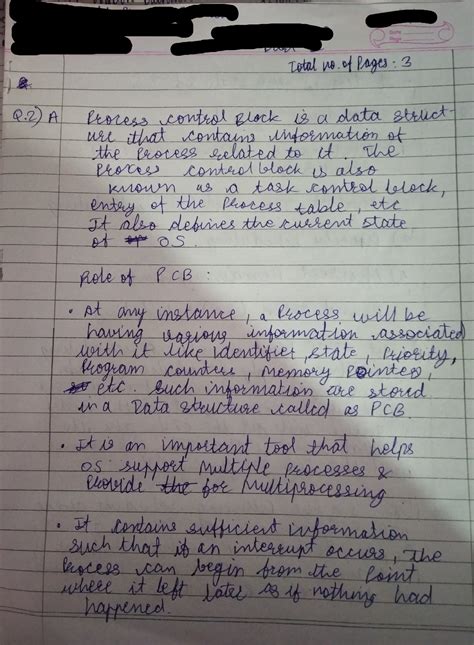 Total no. of Pages : 3
Q.2) A Process control Block is a data struct-
ure that contains information of
the Process related to it. The
Process control block is also
known as a task control block,
entry of the Process table, etc
It also defines the current state
of OS.
Role of PCB :
• At any instance, a Process will be
having various information associated
with it like identifier, state, Priority,
Program counters, Memory Pointers,
etc. Such information are stored
in a Data structure called as PCB.
• It is an important tool that helps
OS support Multiple Processes &
Provide the for Multiprocessing
• It contains sufficient information
such that if an interrupt occurs, the
Process can begin from the Point
where it left later as if nothing had
happened.